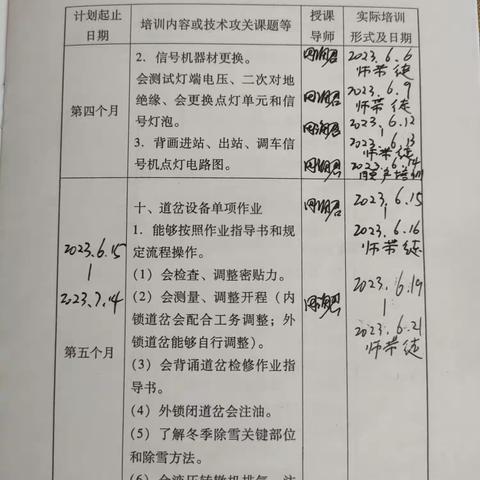 计划起止
日期
培训内容或技术攻关课题等
授课
导师
实际培训
形式及日期
第四个月
2. 信号机器材更换。
会测试灯端电压、二次对地
绝缘、会更换点灯单元和信
号灯泡。
3. 背画进站、出站、调车信
号机点灯电路图。
2023.6.6
师带徒
2023.6.9
师带徒
2023.6.12
2023.6.13
师带徒
2023.6.14
2023.6.15
|
2023.7.14
第五个月
十、道岔设备单项作业
1. 能够按照作业指导书和规
定流程操作。
(1) 会检查、调整密贴力。
(2) 会测量、调整开程（内
锁道岔会配合工务调整；外
锁道岔能够自行调整）。
(3) 会背诵道岔检修作业指
导书。
(4) 外锁闭道岔会注油。
(5) 了解冬季除雪关键部位
和除雪方法。
(6) 会液压转辙机排气、注
2023.6.15
|
2023.6.16
师带徒
2023.6.19
|
2023.6.21
师带徒